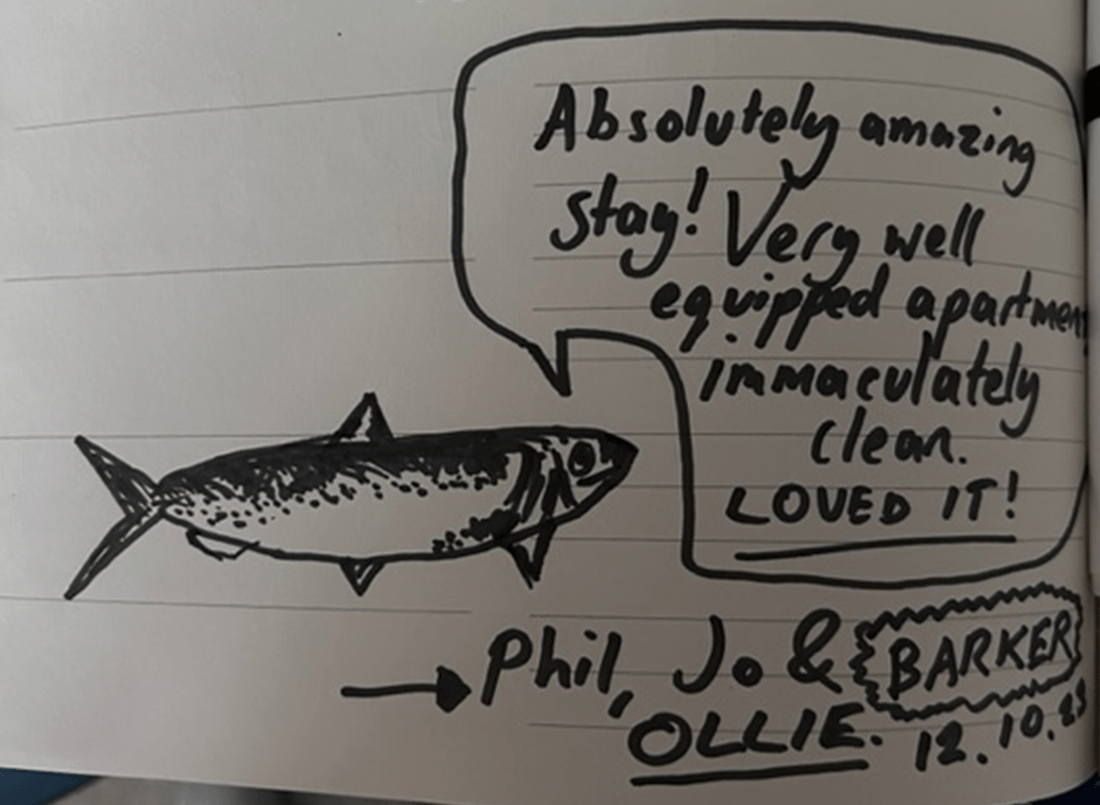 Absolutely amazing
stay! Very well
equipped apartmen
immaculately
clean.
LOVED IT!
Phil, Jo & BARKER
OLLIE. 12.10.23